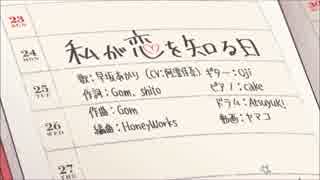 23
SUN
24
MON
私が恋を知る日
歌:早坂あかり(CV:阿澄佳奈) ギター:Oji
25
TUE
作詞:Gom, shito ピアノ:cake
作曲:Gom ドラム:Atsuyuki
26
WED
編曲:HoneyWorks 動画:ヤマコ
27
THE